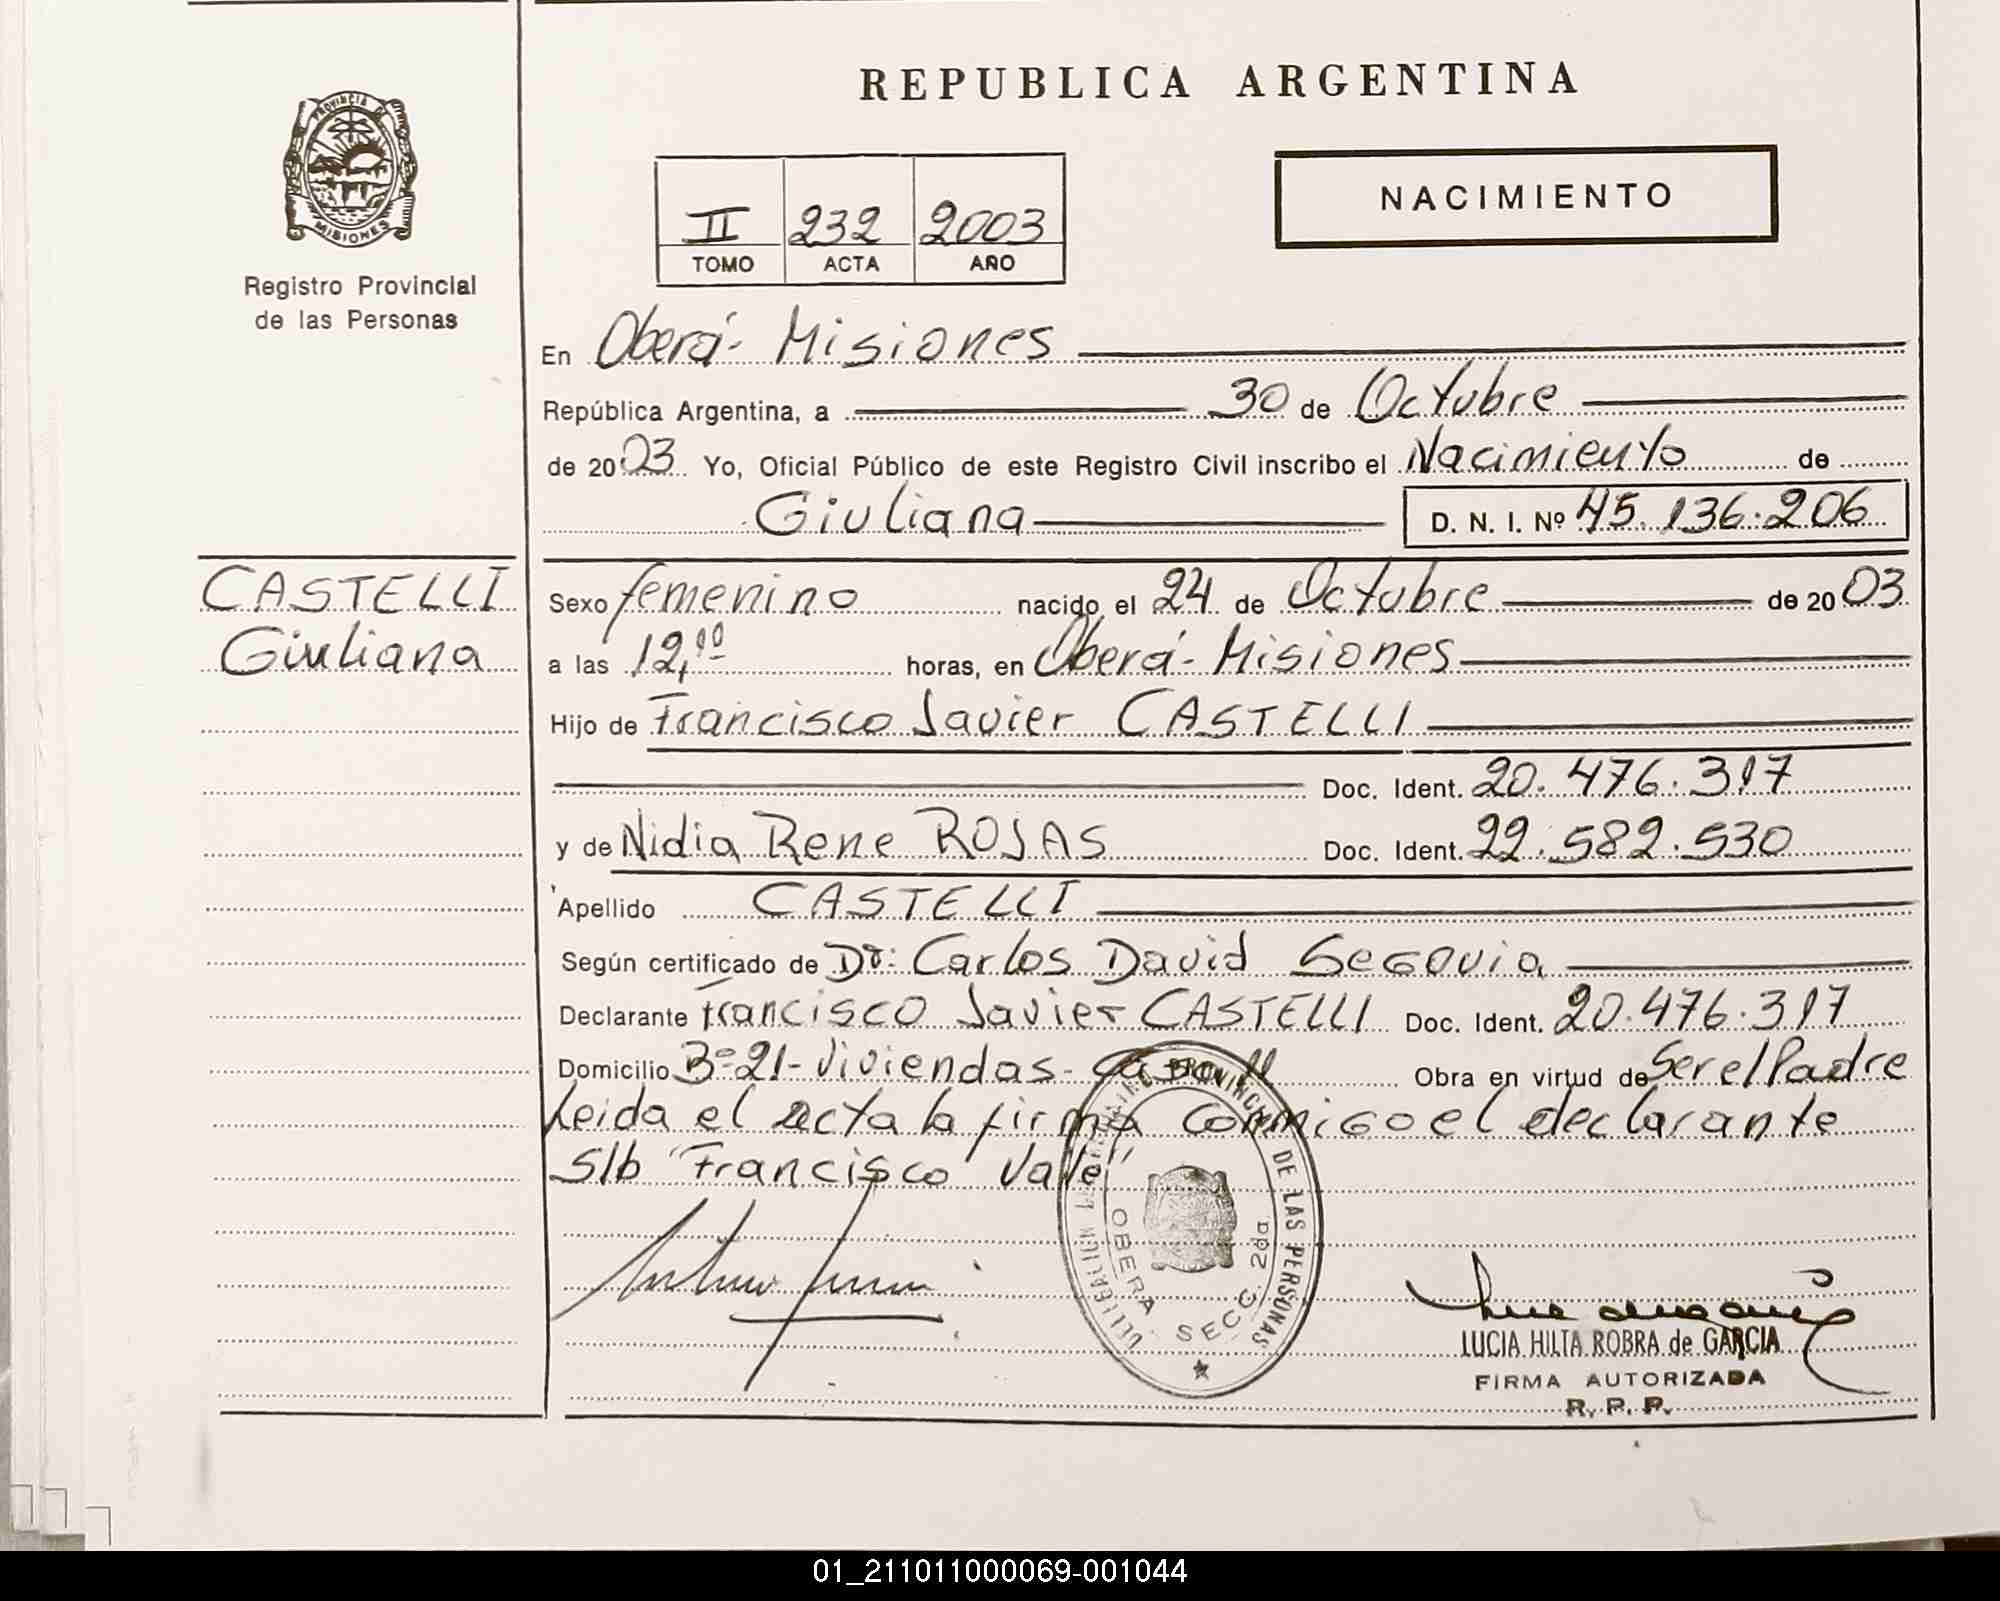 REPUBLICA ARGENTINA
PROVINCIA DE
MISIONES
Registro Provincial
de las Personas
NACIMIENTO
II 232 2003
TOMO ACTA AÑO
En Oberá- Misiones
República Argentina, a 30 de Octubre
de 2003 Yo, Oficial Público de este Registro Civil inscribo el Nacimiento de
Giuliana D. N. I. Nº 45.136.206
CASTELLI
Giuliana
Sexo femenino nacido el 24 de Octubre de 2003
a las 12,10 horas, en Oberá- Misiones
Hijo de Francisco Javier CASTELLI
Doc. Ident. 20.476.317
y de Nidia Rene ROJAS Doc. Ident. 22.582.530
Apellido CASTELLI
Según certificado de Dr: Carlos David Segovia
Declarante Francisco Javier CASTELLI Doc. Ident. 20.476.317
Domicilio Bº 21-Viviendas- Casa 11 Obra en virtud de Ser el Padre
Leida el acta la firma conmigo el declarante
S/b "Francisco Vale"
PROVINCIAL DE LAS PERSONAS
OBERA SECC. 2da
LUCIA HILTA ROBRA de GARCIA
FIRMA AUTORIZADA
R. P. P.
01_211011000069-001044